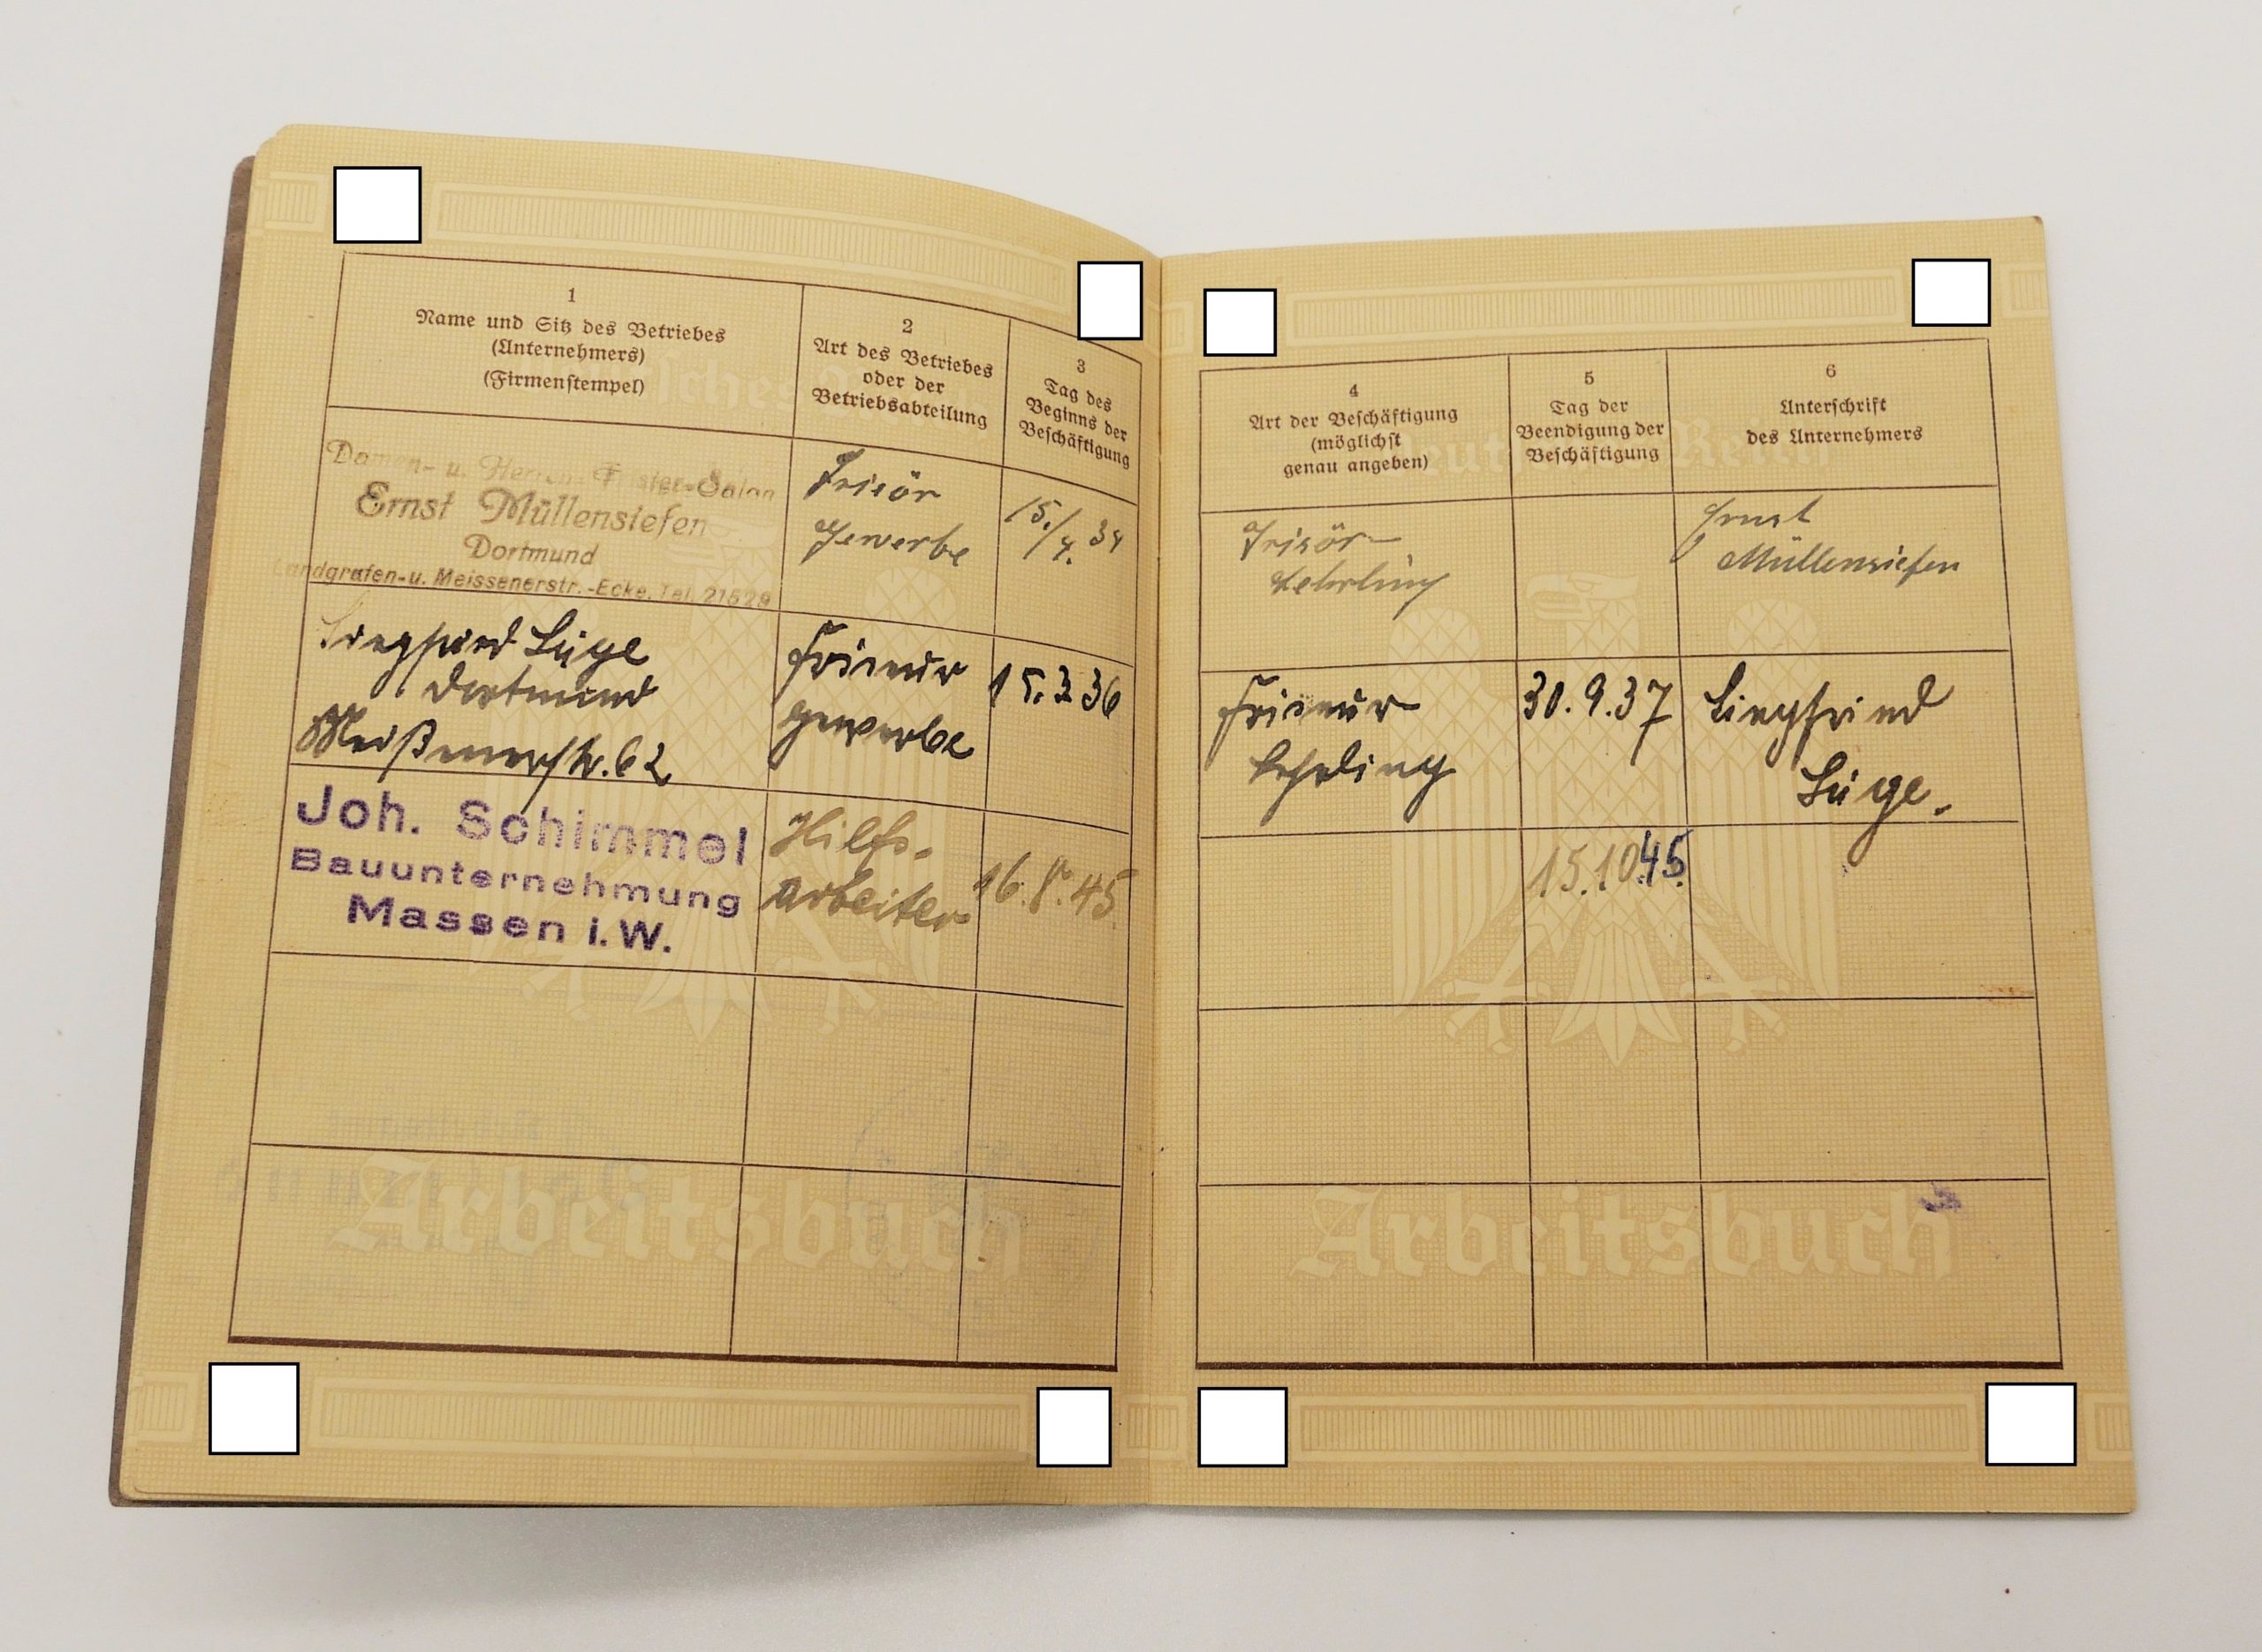 1
Name und Sitz des Betriebes
(Unternehmers)
(Firmenstempel)
2
Art des Betriebes
oder der
Betriebsabteilung
3
Tag des
Beginns der
Beschäftigung
Damen- u. Herren-Frisier-Salon
Ernst Müllensiefen
Dortmund
Landgrafen-u. Meissenerstr.-Ecke. Tel. 21529
Frisör
Gewerbe
15./4. 34
Siegfried Lüge
Dortmund
Meißenerstr. 62
Friseur
gewerbe
15.3 36
Joh. Schimmel
Bauunternehmung
Massen i. W.
Hilfs-
arbeiter
16.8.45
Arbeitsbuch
4
Art der Beschäftigung
(möglichst
genau angeben)
5
Tag der
Beendigung der
Beschäftigung
6
Unterschrift
des Unternehmers
Frisör-
Lehrling
Ernst
Müllensiefen
Friseur
Lehrling
30.9.37
Siegfried
Lüge.
15.10.45.
Arbeitsbuch